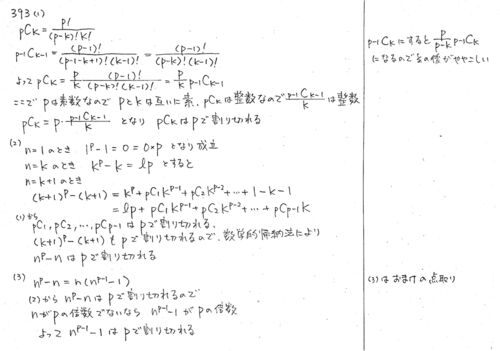 393 (1)
pCk = p! / (p-k)! k!
p-1Ck-1 = (p-1)! / (p-1-k+1)! (k-1)! = (p-1)! / (p-k)! (k-1)!
よって pCk = p/k (p-1)! / (p-k)! (k-1)! = p/k p-1Ck-1
ここで pは素数なので pとkは互いに素. pCkは整数なので p-1Ck-1 / k は整数
pCk = p・ p-1Ck-1 / k となり pCkはpで割り切れる
(2)
n=1のとき 1^p-1=0=0×p となり成立
n=kのとき k^p-k=lp とすると
n=k+1のとき
(k+1)^p-(k+1) = k^p + pC1 k^p-1 + pC2 k^p-2 + … + 1-k-1
= lp + pC1 k^p-1 + pC2 k^p-2 + … + pCp-1 k
(1)から
pC1, pC2, …, pCp-1 はpで割り切れる.
(k+1)^p-(k+1)もpで割り切れるので、数学的帰納法により
n^p-n はpで割り切れる
(3)
n^p-n = n(n^p-1-1)
(2)から n^p-nはpで割り切れるので
nがpの倍数でないなら n^p-1-1 がpの倍数
よって n^p-1-1 はpで割り切れる
p-1Ckにすると p/p-k p-1Ck
になるので
(3)はおまけの点取り